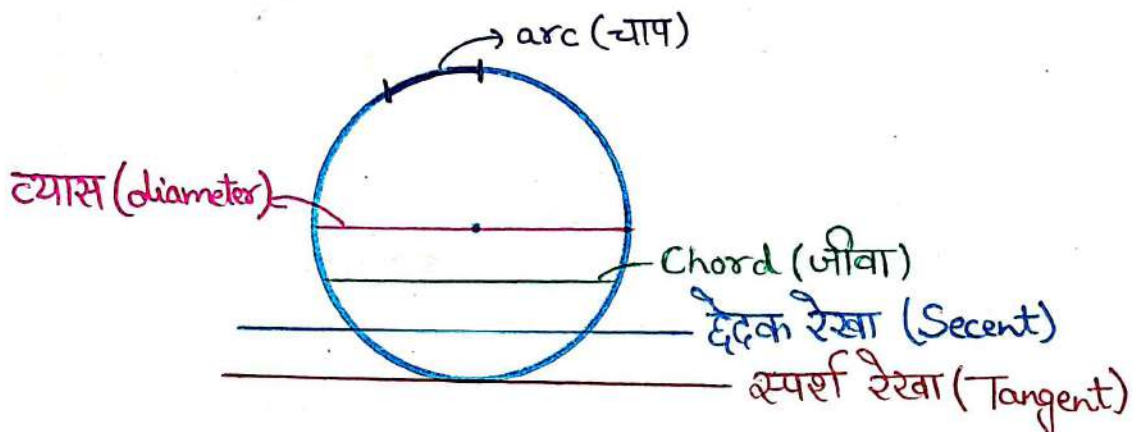 arc (चाप)
व्यास (diameter)
Chord (जीवा)
छेदक रेखा (Secent)
स्पर्श रेखा (Tangent)